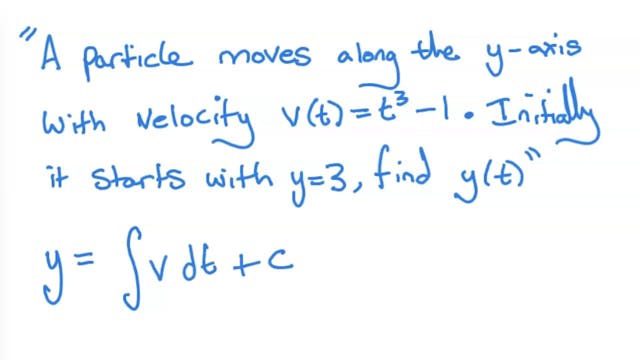 "A particle moves along the y-axis
with velocity v(t) = t³ - 1. Initially
it starts with y=3, find y(t)"
y = ∫v dt + c